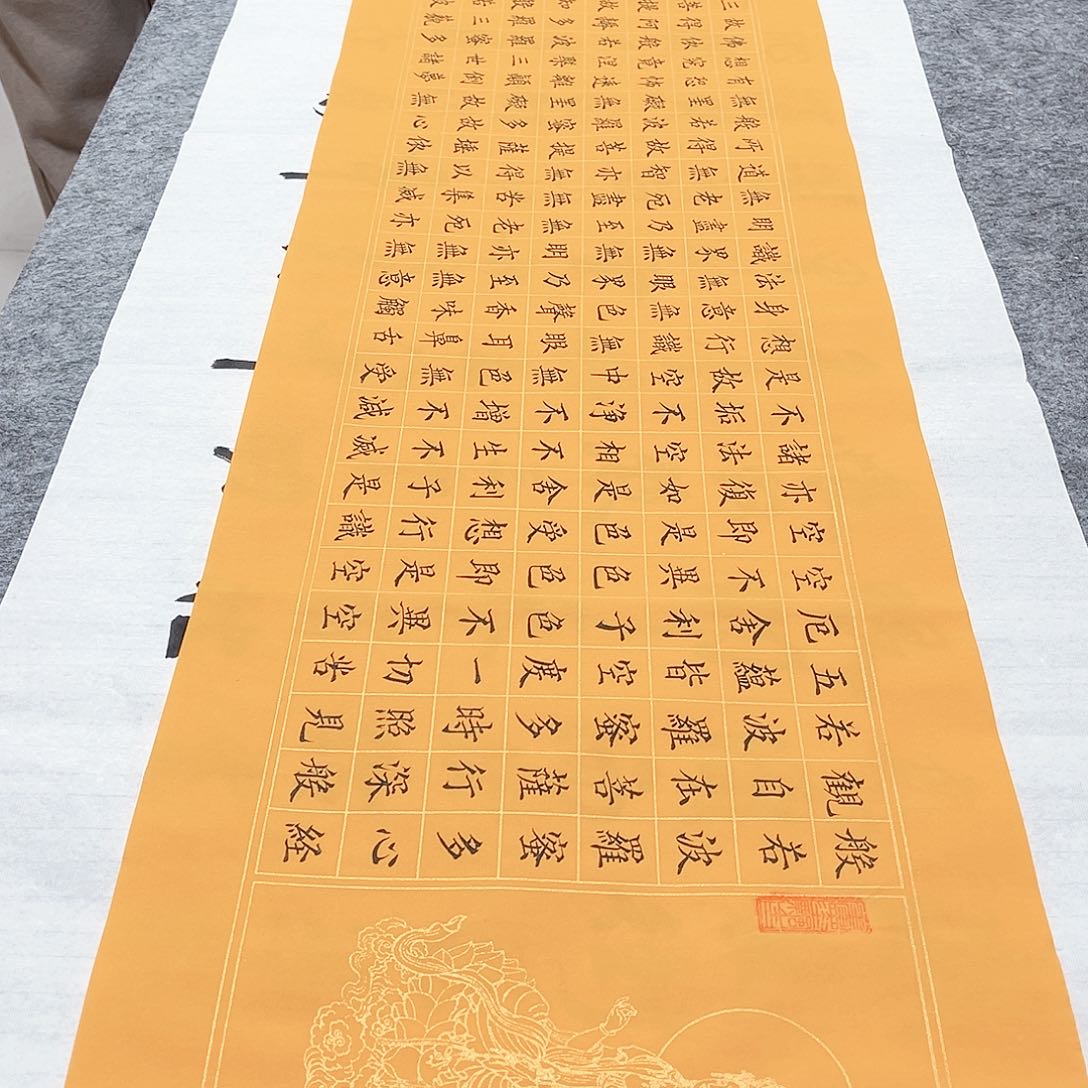 般若波羅蜜多心経
觀自在菩薩行深般
若波羅蜜多時照見
五蘊皆空度一切苦
厄舍利子色不異空
空不異色色即是空
空即是色受想行識
亦復如是舍利子是
諸法空相不生不滅
不垢不淨不增不減
是故空中無色無受
想行識無眼耳鼻舌
身意無色聲香味觸
法無眼界乃至無意
識界無無明亦無無
明盡乃至無老死亦
無老死盡無苦集滅
道無智亦無得以無
所得故菩提薩埵依
般若波羅蜜多故心
無罣礙無罣礙故無
有恐怖遠離顛倒夢
想究竟涅槃三世諸
佛依般若波羅蜜多
故得阿耨多羅三藐
三菩提故知般若